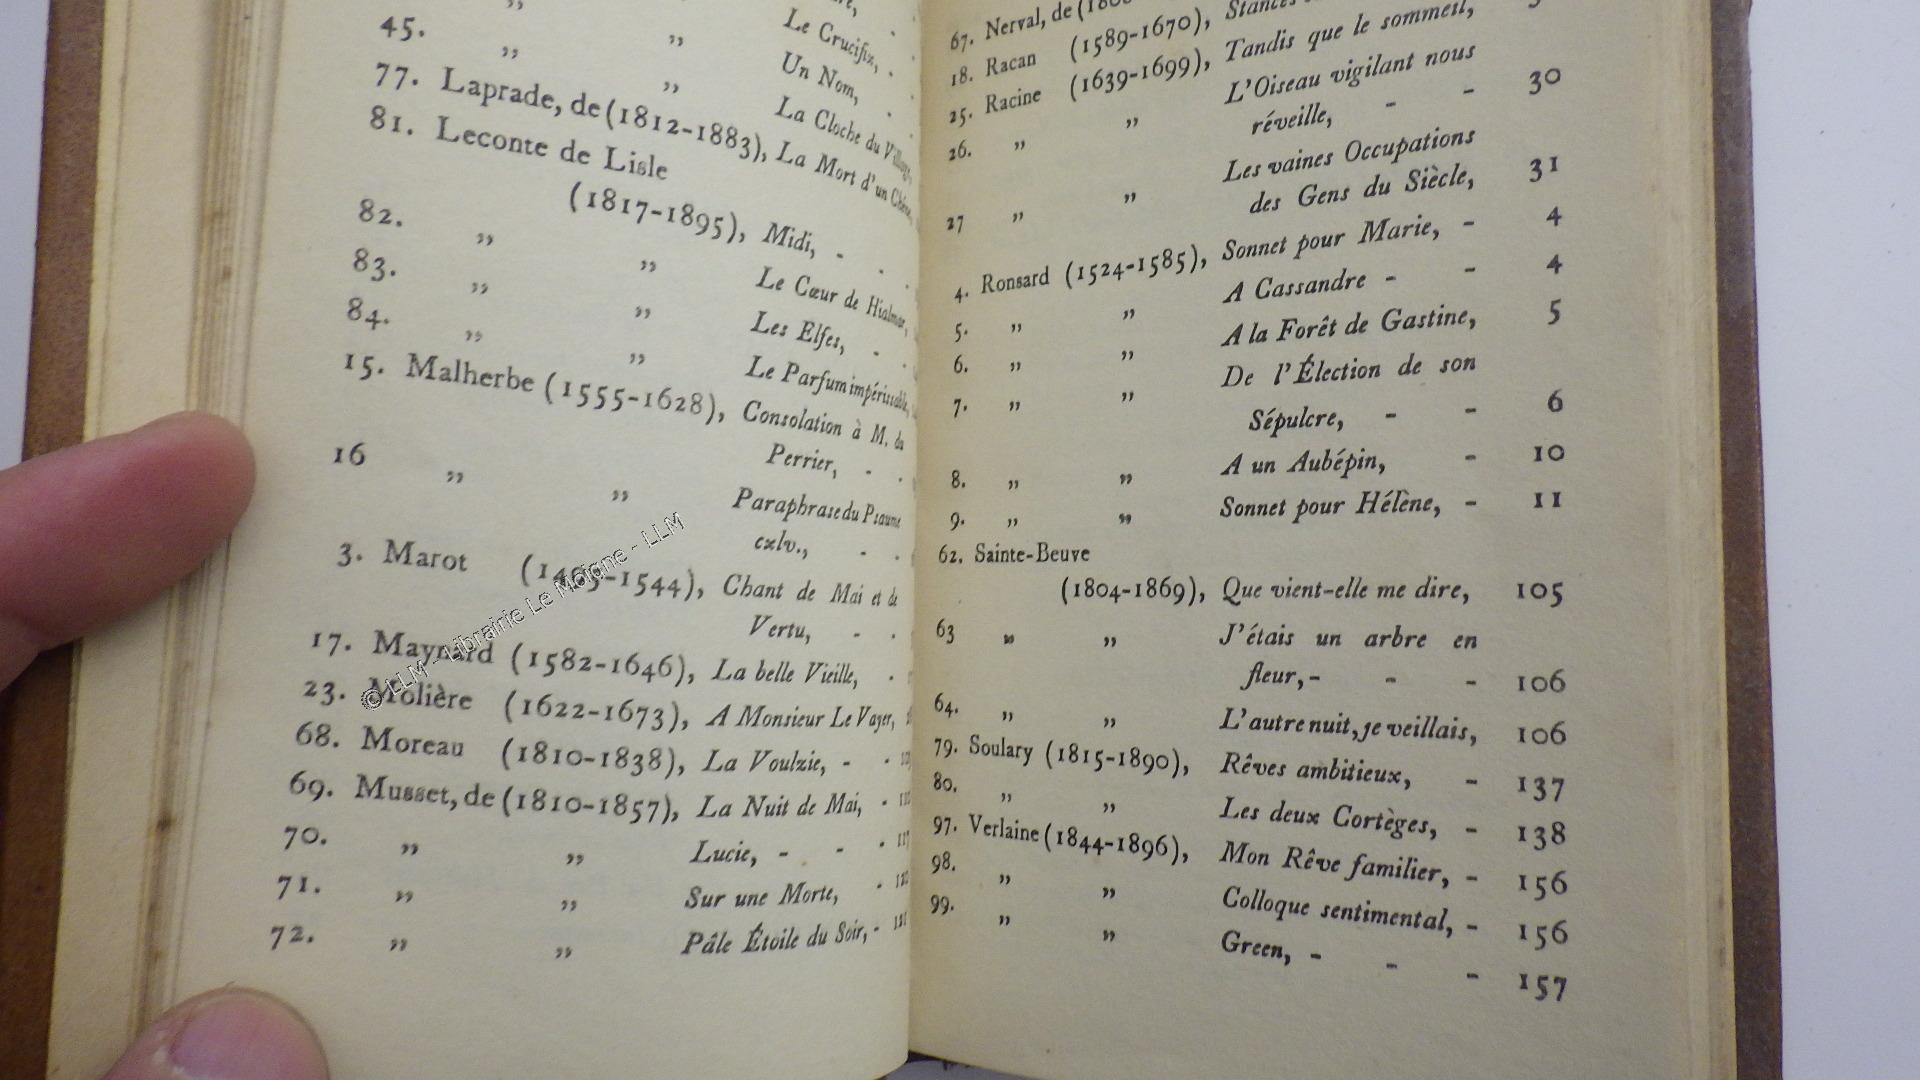 ,,
45. ,, ,, Le Crucifix, -
,, Un Nom, -
77. Laprade, de (1812-1883), La Cloche du
81. Leconte de Lisle La Mort d'un Chêne,
(1817-1895), Midi, - -
82. ,, ,, Le Cœur de Hialmar,
83. ,, ,, Les Elfes, - -
84. ,, ,, Le Parfum impérissable,
15. Malherbe (1555-1628), Consolation à M. du
Perrier, - -
16 ,, ,, Paraphrase du Psaume
cxlv., - -
3. Marot 1544), Chant de Mai et de
Vertu, - -
17. Maynard (1582-1646), La belle Vieille, -
23. Molière (1622-1673), A Monsieur Le Vayer,
68. Moreau (1810-1838), La Voulzie, - -
69. Musset, de (1810-1857), La Nuit de Mai, -
70. ,, ,, Lucie, - - -
71. ,, ,, Sur une Morte, -
72. ,, ,, Pâle Étoile du Soir, -
67. Nerval, de
18. Racan (1589-1670), Stances
25. Racine (1639-1699), Tandis que le sommeil,
26. ,, ,, L'Oiseau vigilant nous
réveille, - - 30
27 ,, ,, Les vaines Occupations
des Gens du Siècle, 31
4. Ronsard (1524-1585), Sonnet pour Marie, - 4
5. ,, ,, A Cassandre - - 4
6. ,, ,, A la Forêt de Gastine, 5
7. ,, ,, De l'Élection de son
Sépulcre, - - 6
8. ,, ,, A un Aubépin, - 10
9. ,, ,, Sonnet pour Hélène, - 11
62. Sainte-Beuve
(1804-1869), Que vient-elle me dire, 105
63 ,, ,, J'étais un arbre en
fleur, - - - 106
64. ,, ,, L'autre nuit, je veillais, 106
79. Soulary (1815-1890), Rêves ambitieux, - 137
80. ,, ,, Les deux Cortèges, - 138
97. Verlaine (1844-1896), Mon Rêve familier, - 156
98. ,, ,, Colloque sentimental, - 156
99. ,, ,, Green, - - - 157
© LLM - Librairie Le Moigne - LLM